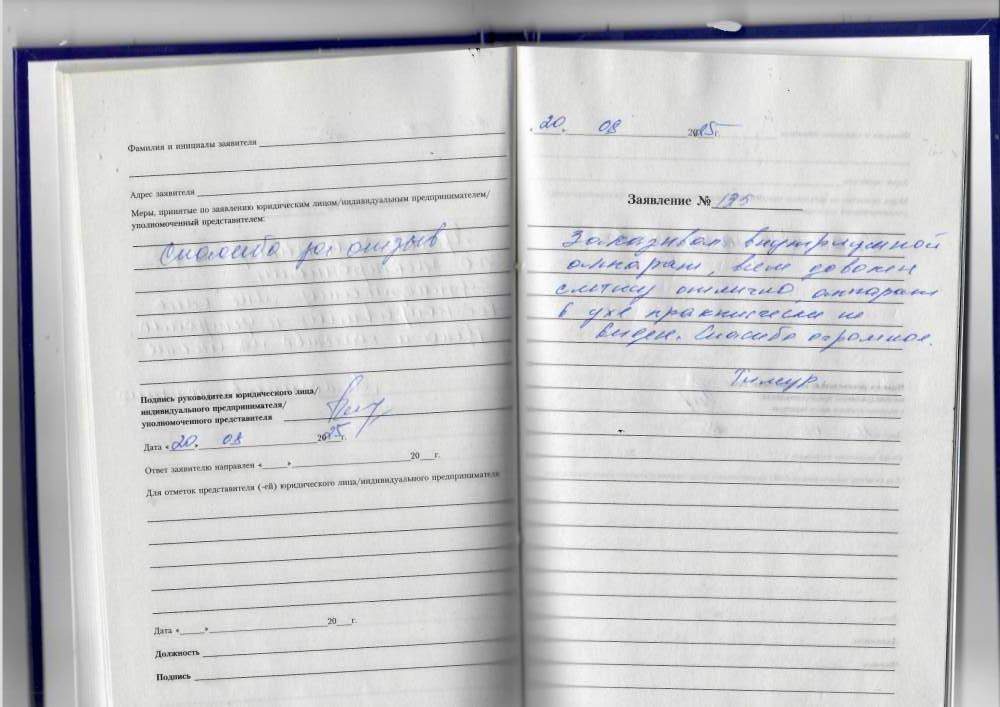 Фамилия и инициалы заявителя
Адрес заявителя
Меры, принятые по заявлению юридическим лицом/индивидуальным предпринимателем/
уполномоченный представителем:
Спасибо за отзыв
Подпись руководителя юридического лица/
индивидуального предпринимателя/
уполномоченного представителя
Дата «20» 08 2025г.
Ответ заявителю направлен «____» 20__г.
Для отметок представителя (-ей) юридического лица/индивидуального предпринимателя
Дата «____» 20__г.
Должность
Подпись
20. 08 2025г.
Заявление № 135
Заказывал внутриушной
аппарат, всем доволен
слышу отлично, аппарат
в ухе практически не
виден. Спасибо огромное.
Тимур